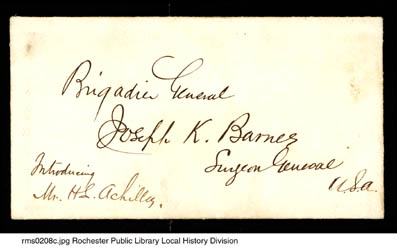 Brigadier General
Joseph K. Barnes
Surgeon General
U.S.A.
Introducing
Mr. H.L. Achilles.
rms0208c.jpg Rochester Public Library Local History Division